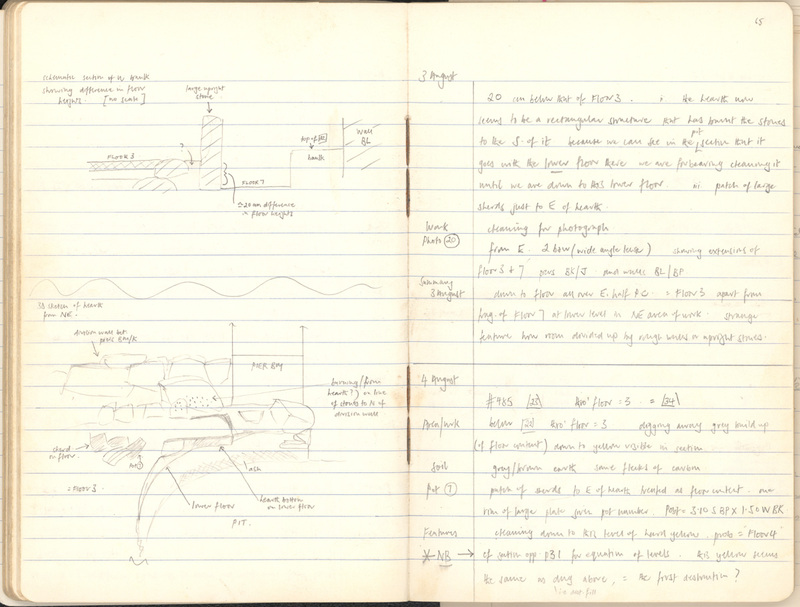 schematic section of
showing difference in floor
heights. [no scale]
large upright
stone
?
FLOOR 3
top of
hearth
Wall
BL
FLOOR 7
≃20 cm difference
in floor heights
3D sketch of hearth
from NE.
division wall bet.
PIER BAY
burning (from
hearth?) on line
of stones to N of
division wall
sherd
on floor.
= FLOOR 3.
ash
lower floor
hearth bottom
on lower floor
PIT.
65
3 August
20 cm below that of FLOOR 3. ii the hearth now
seems to be a rectangular structure that has burnt the stones
to the S of it because we can see in the pit section that it
goes with the lower floor there we are forbearing cleaning it
until we are down to this lower floor. iii patch of large
sherds just to E of hearth.
Work cleaning for photograph
Photo 20 from E. 2 b&w (wide angle lense) showing extensions of
floors 3 + 7 piers BK/J and walls BL/BP
Summary
3 August down to floor all over E. half = FLOOR 3 apart from
frag. of FLOOR 7 at lower level in NE area of work. strange
feature how room divided up by rough walls or upright stones.
4 August
#985 [23] 'floor' = 3 = [24]
Area/work below [23] 'floor' = 3 digging away grey build up
(of floor content) down to yellow visible in section.
Soil grey/brown earth some flecks of carbon
Pot 7 patch of sherds to E of hearth treated as floor content. one
rim of large plate given pot number. Post = 5.10 S BP X 1.50 W BK
Features cleaning down to this level of hard yellow. prob = FLOOR 4
NB → cf section opp p31 for equation of levels. this yellow seems
the same as dug above, = the first destruction?